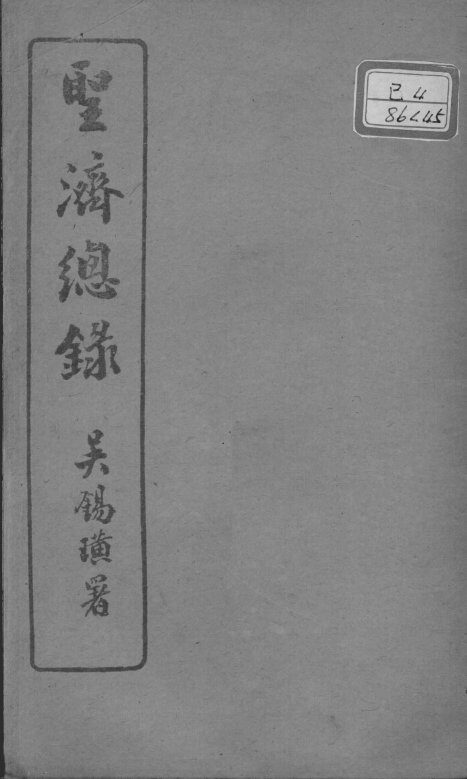 聖濟總錄
吳錫璜署
己 4
86245